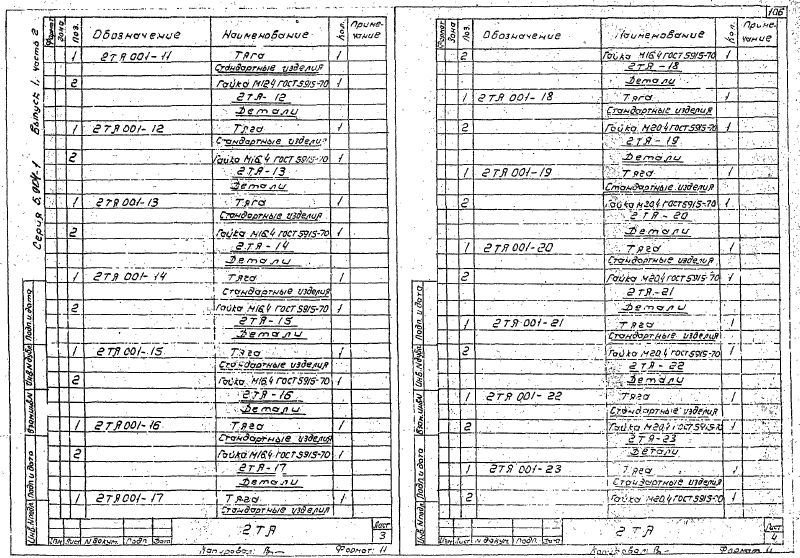 Серия 5.904-1 Выпуск 1. часть 2
Формат Зона Поз. Обозначение Наименование Кол. Приме-чание
1 2ТЯ 001-11 Тяга 1
Стандартные изделия
2 Гайка М12.4 ГОСТ 5915-70 1
2ТЯ-12
Детали
1 2ТЯ 001-12 Тяга 1
Стандартные изделия
2 Гайка М16.4 ГОСТ 5915-70 1
2ТЯ-13
Детали
1 2ТЯ 001-13 Тяга 1
Стандартные изделия
2 Гайка М16.4 ГОСТ 5915-70 1
2ТЯ-14
Детали
1 2ТЯ 001-14 Тяга 1
Стандартные изделия
2 Гайка М16.4 ГОСТ 5915-70 1
2ТЯ-15
Детали
1 2ТЯ 001-15 Тяга 1
Стандартные изделия
2 Гайка М16.4 ГОСТ 5915-70 1
2ТЯ-16
Детали
1 2ТЯ 001-16 Тяга 1
Стандартные изделия
2 Гайка М16.4 ГОСТ 5915-70 1
2ТЯ-17
Детали
1 2ТЯ 001-17 Тяга 1
Стандартные изделия
Инв.№подл. Подп. и дата Взам.инв.№ Инв.№дубл. Подп. и дата
Изм Лист № докум. Подп. Дата
2ТЯ
Лист
3
Копировал: Формат: 11
106
Формат Зона Поз. Обозначение Наименование Кол. Приме-чание
2 Гайка М16.4 ГОСТ 5915-70 1
2ТЯ-18
Детали
1 2ТЯ 001-18 Тяга 1
Стандартные изделия
2 Гайка М20.4 ГОСТ 5915-70 1
2ТЯ-19
Детали
1 2ТЯ 001-19 Тяга 1
Стандартные изделия
2 Гайка М20.4 ГОСТ 5915-70 1
2ТЯ-20
Детали
1 2ТЯ 001-20 Тяга 1
Стандартные изделия
2 Гайка М20.4 ГОСТ 5915-70 1
2ТЯ-21
Детали
1 2ТЯ 001-21 Тяга 1
Стандартные изделия
2 Гайка М20.4 ГОСТ 5915-70 1
2ТЯ-22
Детали
1 2ТЯ 001-22 Тяга 1
Стандартные изделия
2 Гайка М20.4 ГОСТ 5915-70 1
2ТЯ-23
Детали
1 2ТЯ 001-23 Тяга 1
Стандартные изделия
2 Гайка М20.4 ГОСТ 5915-70 1
Инв.№подл. Подп. и дата Взам.инв.№ Инв.№дубл. Подп. и дата
Изм Лист № докум. Подп. Дата
2ТЯ
Лист
4
Копировал: Формат: 11